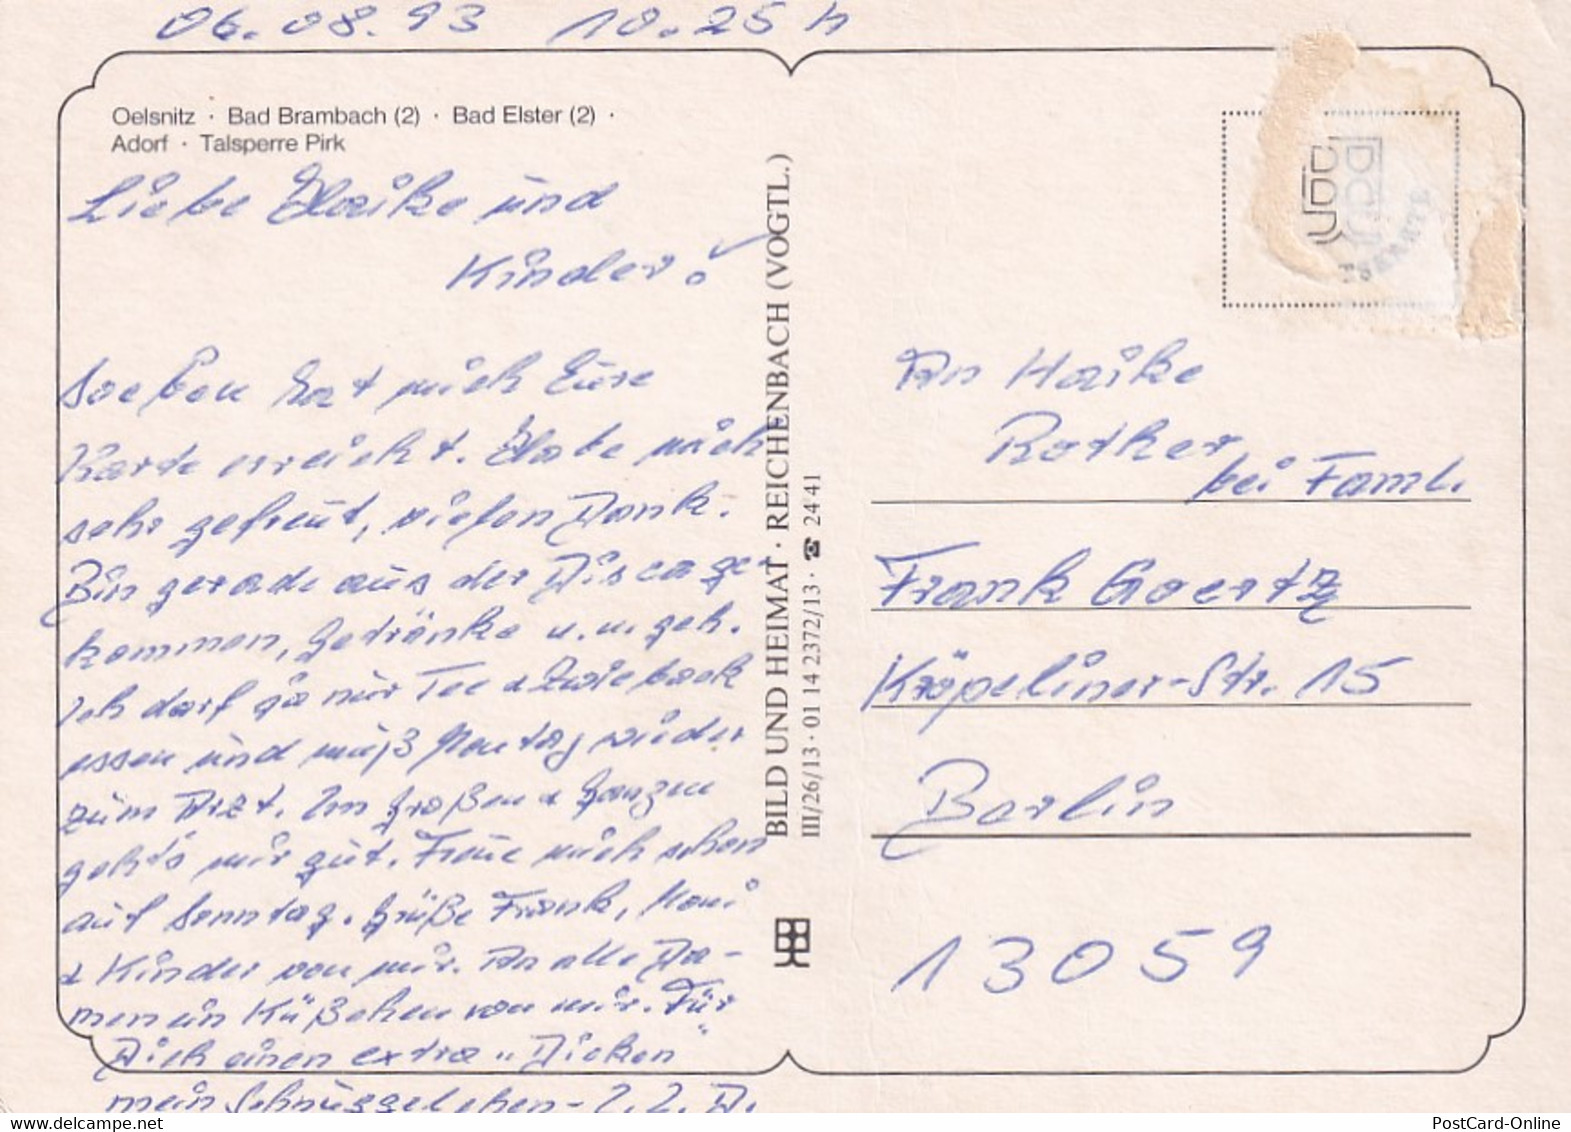 06.08.93 10.25 h
Oelsnitz · Bad Brambach (2) · Bad Elster (2) ·
Adorf · Talsperre Pirk
Liebe Haike und
Kinder!
Soeben hat mich Eure
Karte erreicht. Habe mich
sehr gefreut, vielen Dank.
Bin gerade aus der Disca ge-
kommen, Getränke u.u. geh.
Ich darf ja nur Tee & Zwieback
essen und muß Montag wieder
zum Arzt. Im Großen & Ganzen
geht's mir gut. Freue mich schon
auf Sonntag. Grüße Frank, Moni
& Kinder von mir. An alle Da-
men ein Küßchen von mir. Für
Dich einen extra „Dicken"
mein Schnuggelchen -
BILD UND HEIMAT · REICHENBACH (VOGTL.)
III/26/13 · 01 14 2372/13 · ☎ 24 41
An Haike
Rother
bei Faml.
Frank Goertz
Kröpeliner-Str. 15
Berlin
13059
PostCard-Online
www.delcampe.net